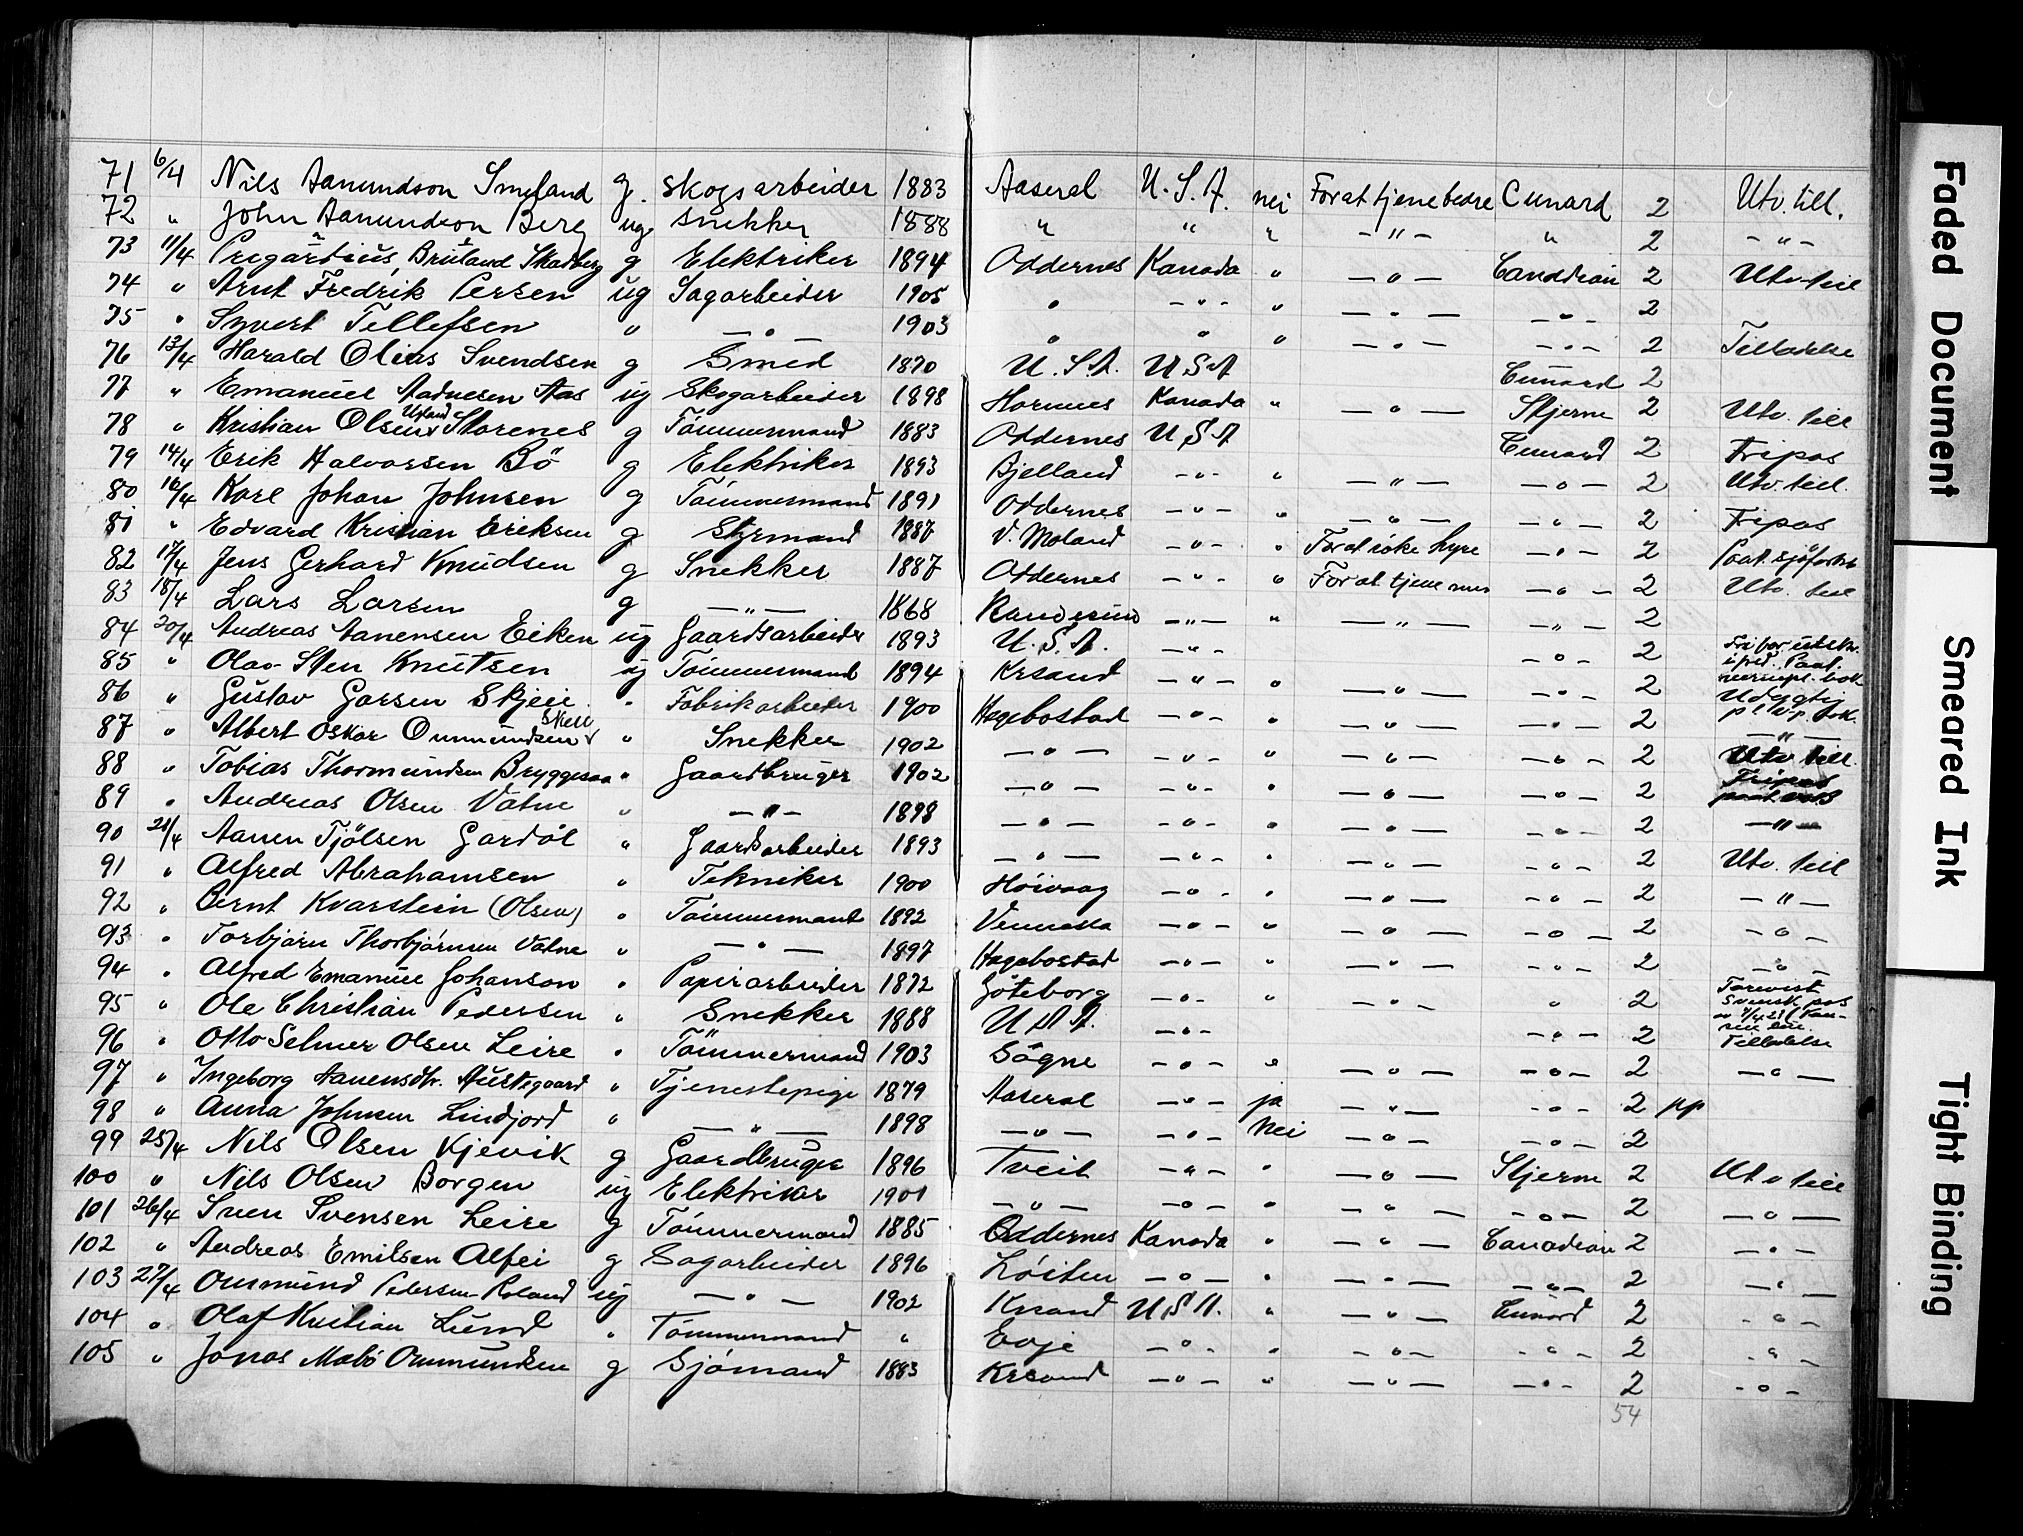 71 6/4 Nils Aanundson Smeland g. skogsarbeider 1883 Aaseral U.S.A. nei For at tjene bedre Cunard 2 Utv. till.
72 " John Aanundson Berg ug. snekker 1888 " " " - " - " 2 - " -
73 11/4 Bruland Skadberg g Elektriker 1894 Oddernes Kanada " - " - Canadian 2 Utv till
74 " Arnt Fredrik Persen ug Sagarbeider 1905 " - " - " - " - - " - 2
75 " Syvert Tellefsen " - " - 1903 " " " - " - - " - 2 Tilladelse
76 13/4 Harald Olias Svendsen g Smed 1870 U.S.A. U S A Cunard 2
77 " Emanuel Aadnesen Aas ug Skogarbeider 1898 Hornnes Kanada " - " - Stjerne 2 Utv. till
78 " Kristian Olsen Ugland Storenes g Tömmermand 1883 Oddernes U S A Cunard 2 Fripas
79 14/4 Erik Halvorsen Bö g Elektriker 1893 Bjelland - " - " - " - - " - 2 Utv. till.
80 16/4 Karl Johan Johnsen g Tömmermand 1891 Oddernes - " - " - " - - " - 2 Fripas
81 " Edvard Kristian Eriksen g Styrmand 1887 V. Moland - " - " For at söke hyre - " - 2 Paat. sjöfartsb
82 17/4 Jens Gerhard Knudsen g Snekker 1887 Oddernes - " - " For at tjene mer - " - 2 Utv. till
83 18/4 Lars Larsen g - " - 1868 Randesund - " - " - " - - " - 2
84 20/4 Andreas Aanensen Eiken ug Gaardsarbeider 1893 U.S.A. - " - - " - 2 Fri for utskr. i fred. Paat.
85 " Olav Sten Knutsen ug Tömmermand 1894 Krsand - " - " - " - - " - 2 bok
86 " Gustav Garsen Skjeie " Fabrikarbeider 1900 Hegebostad - " - " - " - - " - 2 Udygtig
87 " Albert Oskar Ommundsen Skeie " Snekker 1902 - " - - " - " - " - - " - 2 - " - Utv till.
88 " Tobias Thormundsen Bryggesaa " Gaardbruger 1902 - " - - " - " - " - - " - 2 Fripas
89 " Andreas Olsen Vatne " - " - 1898 - " - - " - " - " - - " - 2 - " -
90 21/4 Aanen Tjölsen Gardöl " Gaardsarbeider 1893 - " - - " - " - " - - " - 2 Utv. till
91 " Alfred Abrahamsen " Tekniker 1900 Höivaag - " - " - " - - " - 2 - " -
92 " Bernt Kvarstein (Olsen) " Tömmermand 1892 Vennesla - " - " - " - - " - 2 - " -
93 " Torbjörn Thorbjörnsen Vatne " - " - 1897 Hegebostad - " - " - " - - " - 2 - " -
94 " Alfred Emanuel Johanson " Papirarbeider 1872 Göteborg - " - " - " - " 2 Forevist svensk pas
95 " Ole Christian Pedersen " Snekker 1888 U.S.A. - " - - " - 2 Tilladelse
96 " Otto Selmer Olsen Leire " Tömmermand 1903 Sögne - " - " - " - - " - 2 - " -
97 " Ingeborg Aanensdtr. Austegaard " Tjenestepige 1879 Aaseral - " - ja - " - - " - 2 pp
98 " Anna Johnsen Lindjord " - " - 1898 - " - - " - Nei - " - - " - 2
99 25/4 Nils Olsen Kjevik g Gaardbruger 1896 Tveit - " - " - " - Stjerne 2 Utv till
100 " Nils Olsen Borgen ug Elektriker 1901 - " - - " - " - " - - " - 2 - " -
101 26/4 Sven Svensen Leire g Tömmermand 1885 Oddernes Kanada " - " - Canadian 2 - " -
102 " Andreas Emilsen Alfei g Sagarbeider 1896 Löiten - " - " - " - - " - 2 - " -
103 27/4 Ommund Pedersen Roland ug - " - 1902 Krsand U S A. " - " - Cunard 2 - " -
104 " Olaf Kristian Lund " Tömmermand " Evje - " - " - " - - " - 2 - " -
105 " Jonas Mebö Ommundsen g Sjömand 1883 Krsand - " - " - " - - " - 2 - " -
54
Faded Document
Smeared Ink
Tight Binding